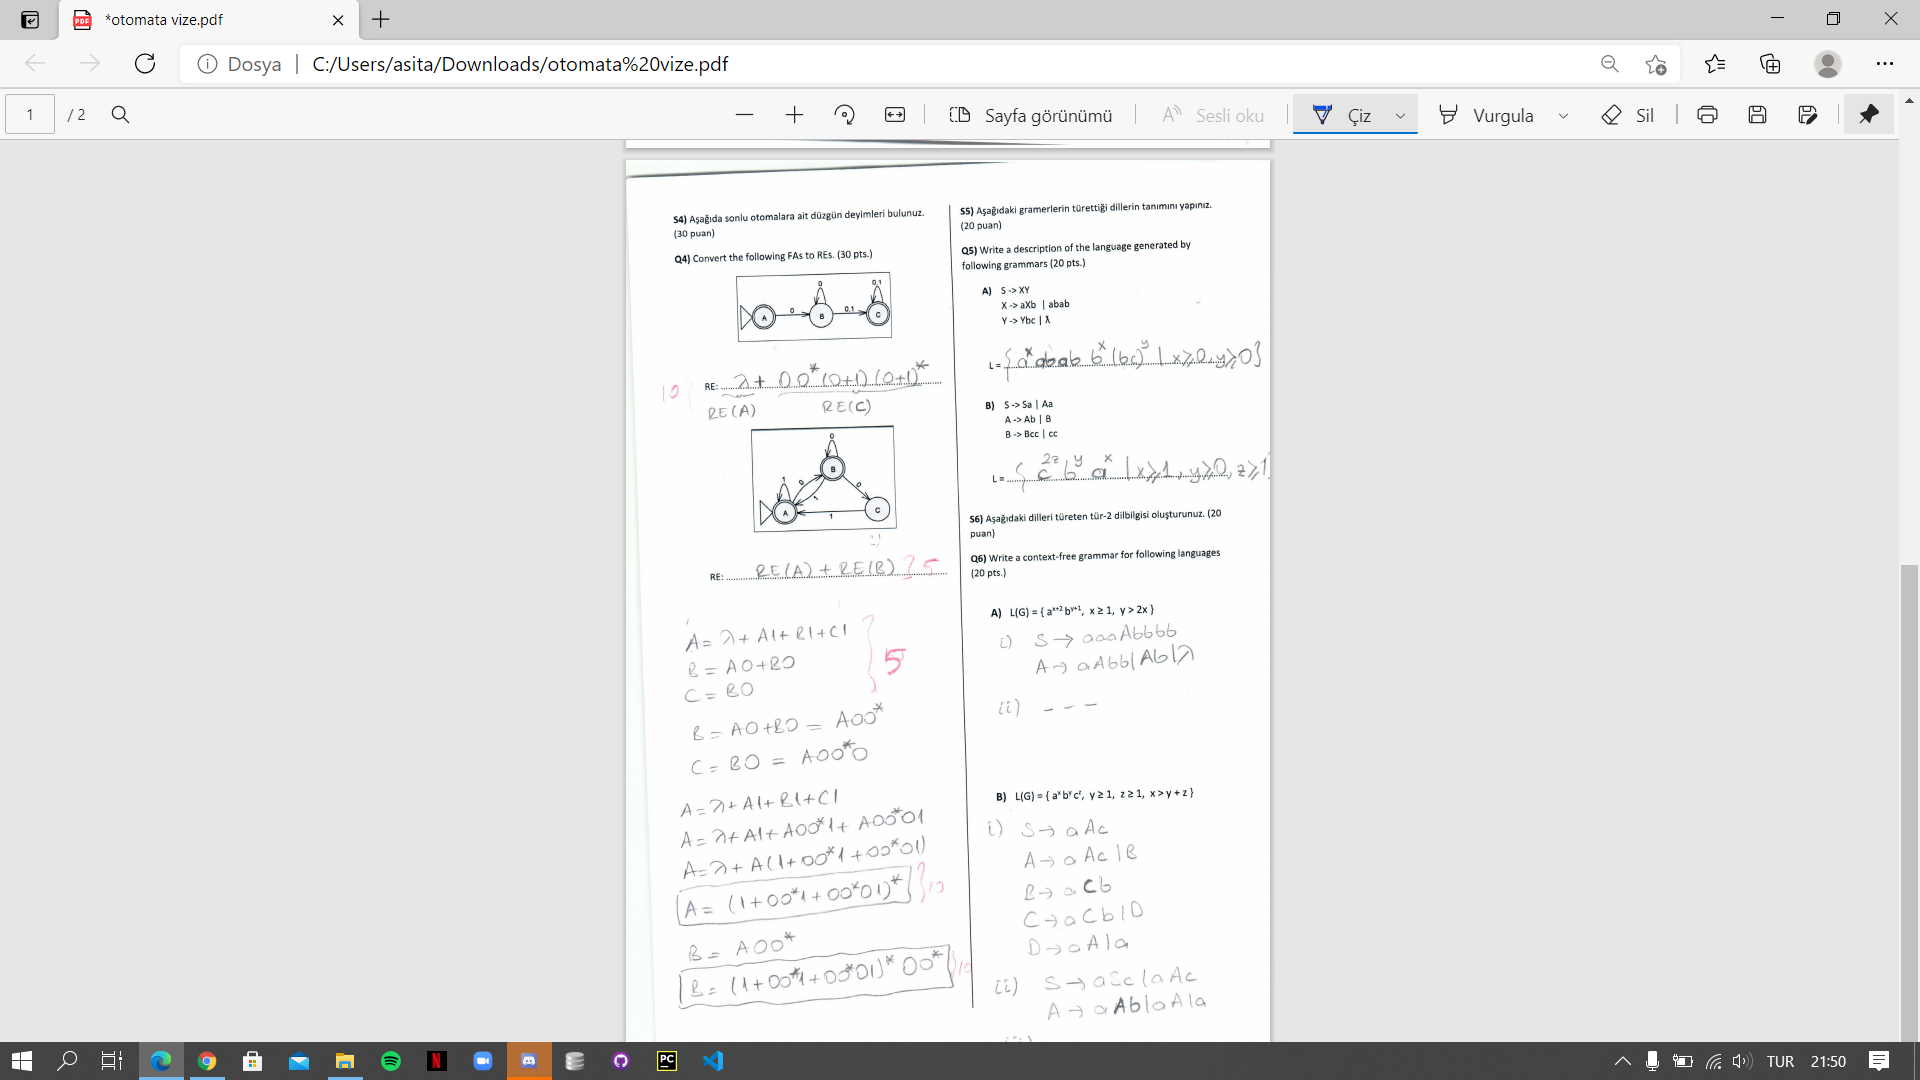 *otomata vize.pdf
Dosya
C:/Users/asita/Downloads/otomata%20vize.pdf
1
/ 2
Sayfa görünümü
Sesli oku
Çiz
Vurgula
Sil
S4) Aşağıda sonlu otomalara ait düzgün deyimleri bulunuz.
(30 puan)
Q4) Convert the following FAs to REs. (30 pts.)
A 0 B 0 0,1 C 0,1
10
RE: λ + 00*(0+1)(0+1)*
RE(A) RE(C)
0
B
1 0 1 0
A 1 C
RE: RE(A) + RE(B) 5
A = λ + A1 + B1 + C1
B = A0+B0
C = B0
5
B = A0+B0 = A00*
C = B0 = A00*0
A = λ + A1 + B1 + C1
A = λ + A1 + A00*1 + A00*01
A = λ + A(1+00*1+00*01)
A = (1+00*1+00*01)*
10
B = A00*
B = (1+00*1+00*01)* 00*
10
S5) Aşağıdaki gramerlerin türettiği dillerin tanımını yapınız.
(20 puan)
Q5) Write a description of the language generated by
following grammars (20 pts.)
A) S -> XY
X -> aXb | abab
Y -> Ybc | λ
L = {a^x abab b^x (bc)^y | x≥0, y≥0}
B) S -> Sa | Aa
A -> Ab | B
B -> Bcc | cc
L = { c^2z b^y a^x | x≥1, y≥0, z≥1
S6) Aşağıdaki dilleri türeten tür-2 dilbilgisi oluşturunuz. (20
puan)
Q6) Write a context-free grammar for following languages
(20 pts.)
A) L(G) = { a^x+2 b^y+1, x ≥ 1, y > 2x }
i) S → aaaAbbbb
A → aAbb|Ab|λ
ii) - - -
B) L(G) = { a^x b^y c^z, y ≥ 1, z ≥ 1, x > y + z }
i) S → aAc
A → aAc|B
B → aCb
C → aCb|D
D → aA|a
ii) S → aSc|aAc
A → aAb|aA|a
PC
TUR
21:50